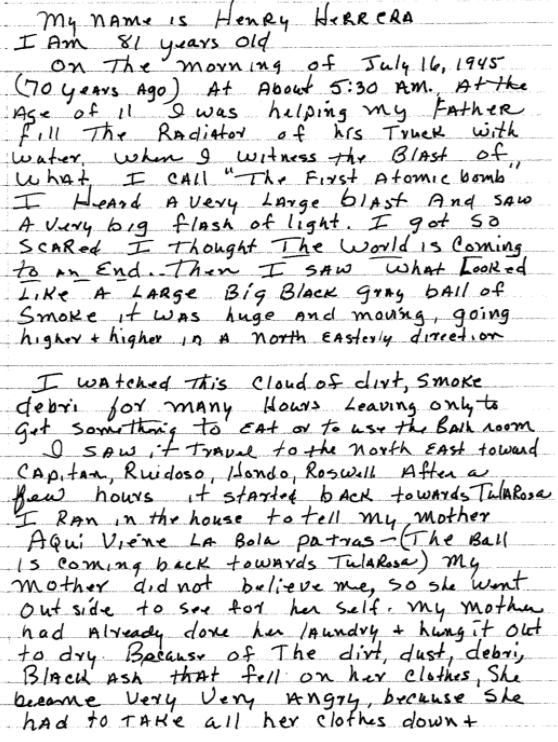 My name is Henry Herrera
I Am 81 years old
On The morning of July 16, 1945
(70 years Ago) At About 5:30 AM. At the
Age of 11 I was helping my Father
fill The Radiator of his Truck with
water, when I witness the Blast of
what I call "The First Atomic bomb"
I Heard A very Large blast And saw
A very big flash of light. I got so
scared I Thought The World is Coming
to an End.. Then I saw what Looked
Like A Large Big Black gray ball of
smoke it was huge and moving, going
higher + higher in a north Easterly direction
I watched This cloud of dirt, smoke
debri for many Hours Leaving only to
get something to eat or to use the Bath room
I saw it Travel to the north East toward
Capitan, Ruidoso, Hondo, Roswell After a
few hours it started back towards Tularosa
I Ran in the house to tell my mother
Aqui Viene La Bola patras - (The Ball
is coming back towards Tularosa) my
mother did not believe me, so she went
out side to see for her self. my mother
had Already done her laundry + hung it out
to dry. Because of The dirt, dust, debri,
Black Ash that fell on her clothes, She
became Very Very Angry, because she
had to take all her clothes down +